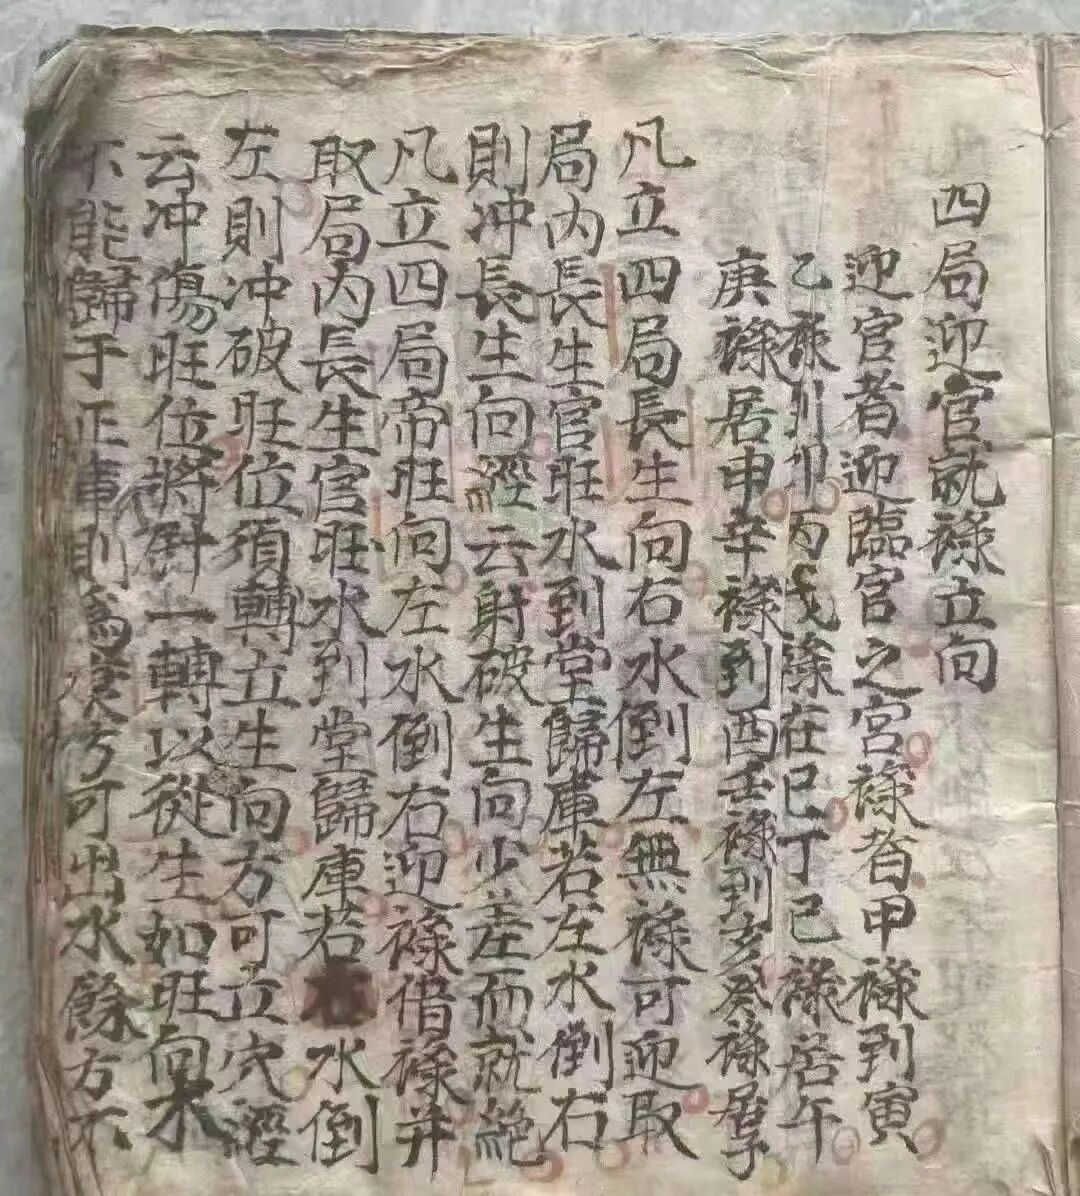 四局迎官就祿立向
迎官者迎臨官之宮祿者甲祿到寅
乙祿到卯丙戊祿在巳丁己祿居午
庚祿居申辛祿到酉壬祿到亥癸祿居子
凡立四局長生向右水倒左無祿可迎取
局內長生官旺水到堂歸庫若左水倒右
則沖長生向經云射破生向少差而就絕
凡立四局帝旺向左水倒右迎祿借祿并
取局內長生官旺水到堂歸庫若右水倒
左則冲破旺位須轉立生向方可立穴經
云冲傷旺位將針一轉以從生如旺向木
不能歸于正庫則為庚丙可出水餘方不